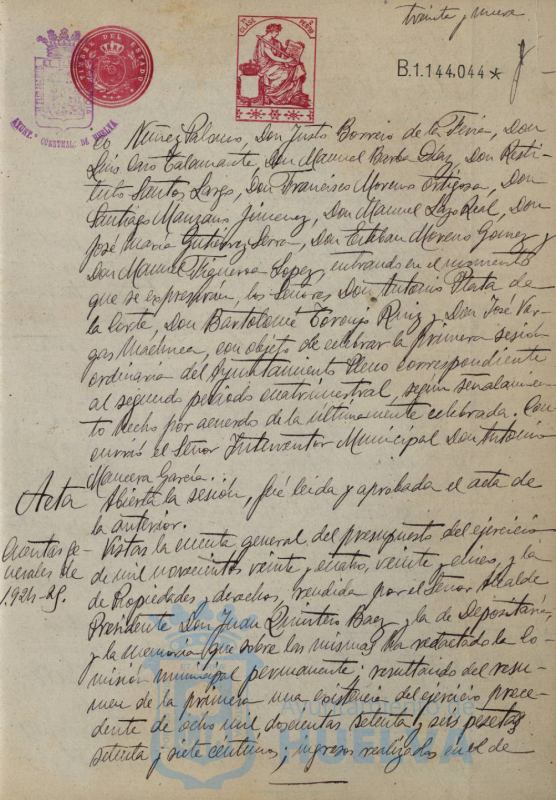 treinta y nueve
TIMBRE DEL ESTADO
8ª CLASE
B.1.144.044 *
AYUNT. CONSTNAL. DE HUELVA
co Nuñez Palomo, Don Justo Borrero de la Feria, Don
Luis Caro Talamante, Don Manuel Barba Diaz, Don Resti-
tuto Santos Largo, Don Francisco Moreno Ortigosa, Don
Santiago Manzano Jimenez, Don Manuel Lazo Real, Don
José Maria Gutierrez Serra, Don Esteban Moreno Gomez y
Don Manuel Figueroa Lopez, entrando en el momento
que se expresarán, los Señores Don Antonio Plata de
la Corte, Don Bartolomé Toronjo Ruiz y Don José Var-
gas Machuca, con objeto de celebrar la primera sesión
ordinaria del Ayuntamiento Pleno correspondiente
al segundo periodo cuatrimestral, según señalamien-
to hecho por acuerdo de la últimamente celebrada. Con-
currió el Señor Interventor Municipal Don Antonio
Mancera García.
Acta
Abierta la sesión, fué leida y aprobada el acta de
la anterior.
Cuentas ge-
nerales de
1924-25.
Vistas la cuenta general del presupuesto del ejercicio
de mil novecientos veinte y cuatro, veinte y cinco, y la
de Propiedades y derechos, rendida por el Señor Alcalde
Presidente Don Juan Quintero Baez y la de Depositaria,
y la memoria que sobre las mismas ha redactado la Co-
misión municipal permanente; resultando del resu-
men de la primera una existencia del ejercicio prece-
dente de ocho mil doscientas setenta y seis pesetas
setenta y siete centimos; ingresos realizados en el de
Ayuntamiento de
HUELVA